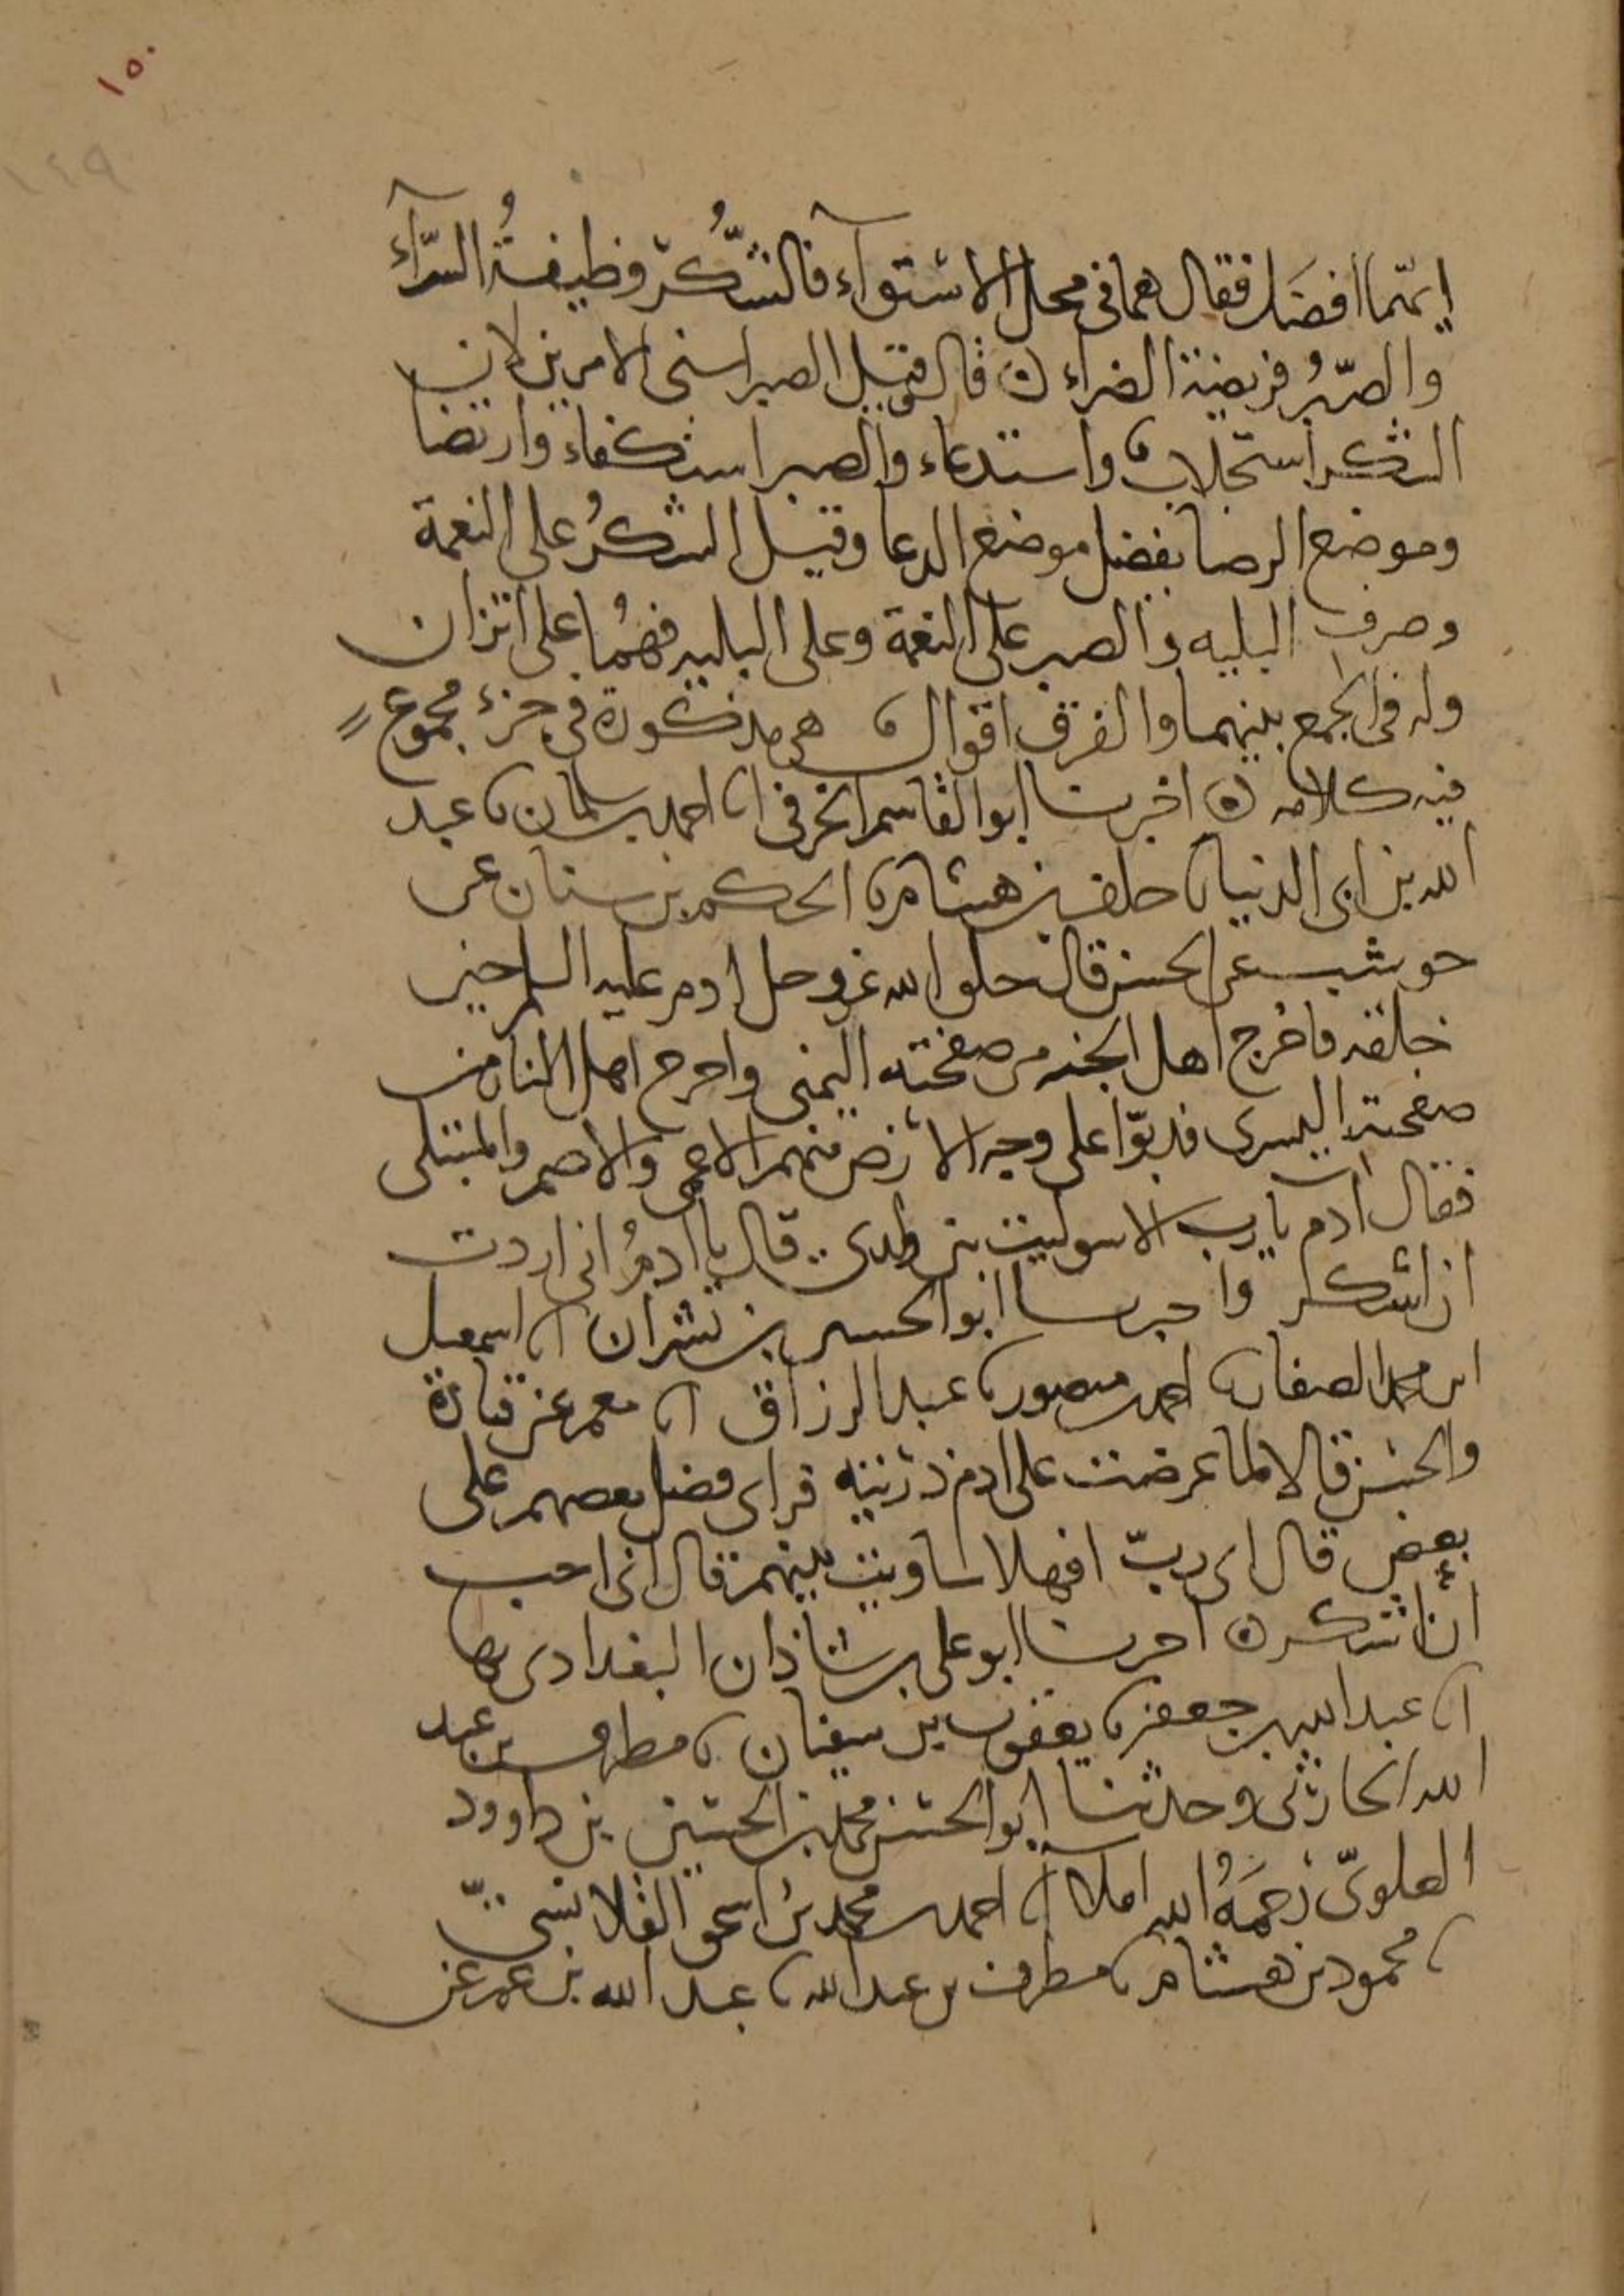 ١٥٠
١٤٩
ايهما افضل فقال هما في محل الاستوآء فالشُّكرُ وظيفةُ السرّآء
والصّبرُ فريضة الضراء ۞ قال وقيل الصبر اسنى الامرين لان
الشكر استجلاب واستدعاء والصبر استكفاء وارتضا
وموضع الرضا يفضل موضع الدعا وقيل الشكرُ على النعمة
وصرف البليه والصبر على النعمة وعلى البليه فهُما على اتزان
وله في الجمع بينهما والفرق اقوال هي مذكورة في جزء مجموع
فيه كلامه ۞ اخبرنا ابو القاسم الخرقي انا احمد بن سلمان نا عبد
الله بن ابي الدنيا نا خلف بن هشام نا الحكم بن سنان عن
حوشب عن الحسن قال خلق الله عز وجل ادم عليه السلم حين
خلقه فاخرج اهل الجنه من صفحته اليمنى واخرج اهل النار من
صفحته اليسرى فدبّوا على وجه الارض منهم الاعمى والاصم والمبتلى
فقال ادم يا رب الا سويت بين ولدي قال يا ادمُ اني اردت
ان اشكر واخبرنا ابو الحسين بن بشران انا اسمعيل
ابن محمد الصفار نا احمد بن منصور نا عبد الرزاق انا معمر عن قتادة
والحسن قالا لما عرضت على ادم ذريته فراى فضل بعضهم على
بعض قال اي ربّ افهلا ساويت بينهم قال اني احب
أن اشكر ۞ اخبرنا ابو علي بن شاذان البغدادي بها
انا عبد الله بن جعفر نا يعقوب بن سفيان نا مطرف بن عبد
الله الحارثي وحدثنا ابو الحسن محمد بن الحسين بن داوود
العلويّ رَحمَهُ الله املاء انا احمد بن محمد بن اسحق القلانسيّ
نا محمود بن هشام نا مطرف بن عبد الله نا عبد الله بن عمر عن